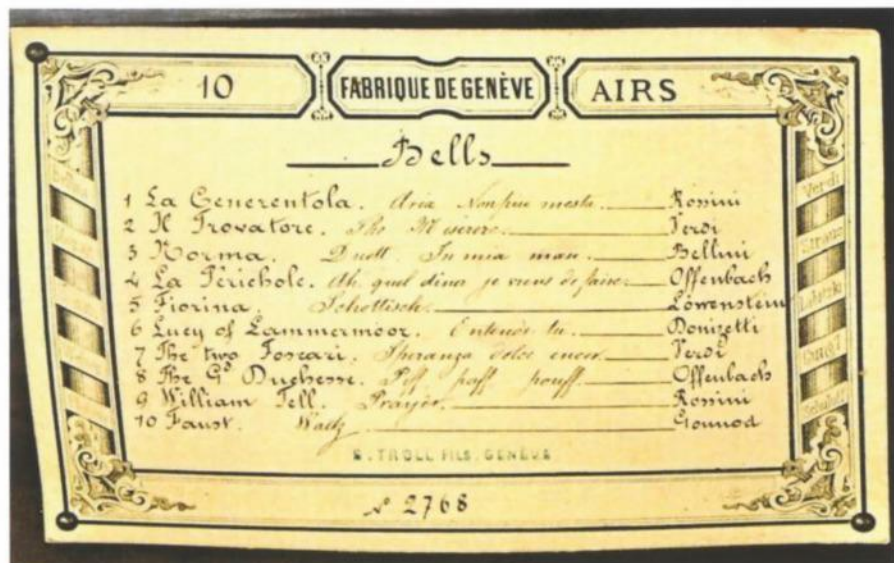 10 FABRIQUE DE GENÈVE AIRS
Bells
1 La Generentola. Aria Non piu mesta. Rossini
2 Il Trovatore. The Miserere. Verdi
3 Norma. Duett. In mia man. Bellini
4 La Périchole. Ah quel diner je viens de faire. Offenbach
5 Fiorina. Schottisch. Löwenstein
6 Lucy of Lammermoor. Donizetti
7 The two Foscari. Speranza dolce encor. Verdi
8 The Gd Duchesse. Piff paff pouff. Offenbach
9 William Tell. Prayer. Rossini
10 Faust. Waltz Gounod
S. TROLL FILS. GENÈVE
№ 2768
Verdi
Strauss